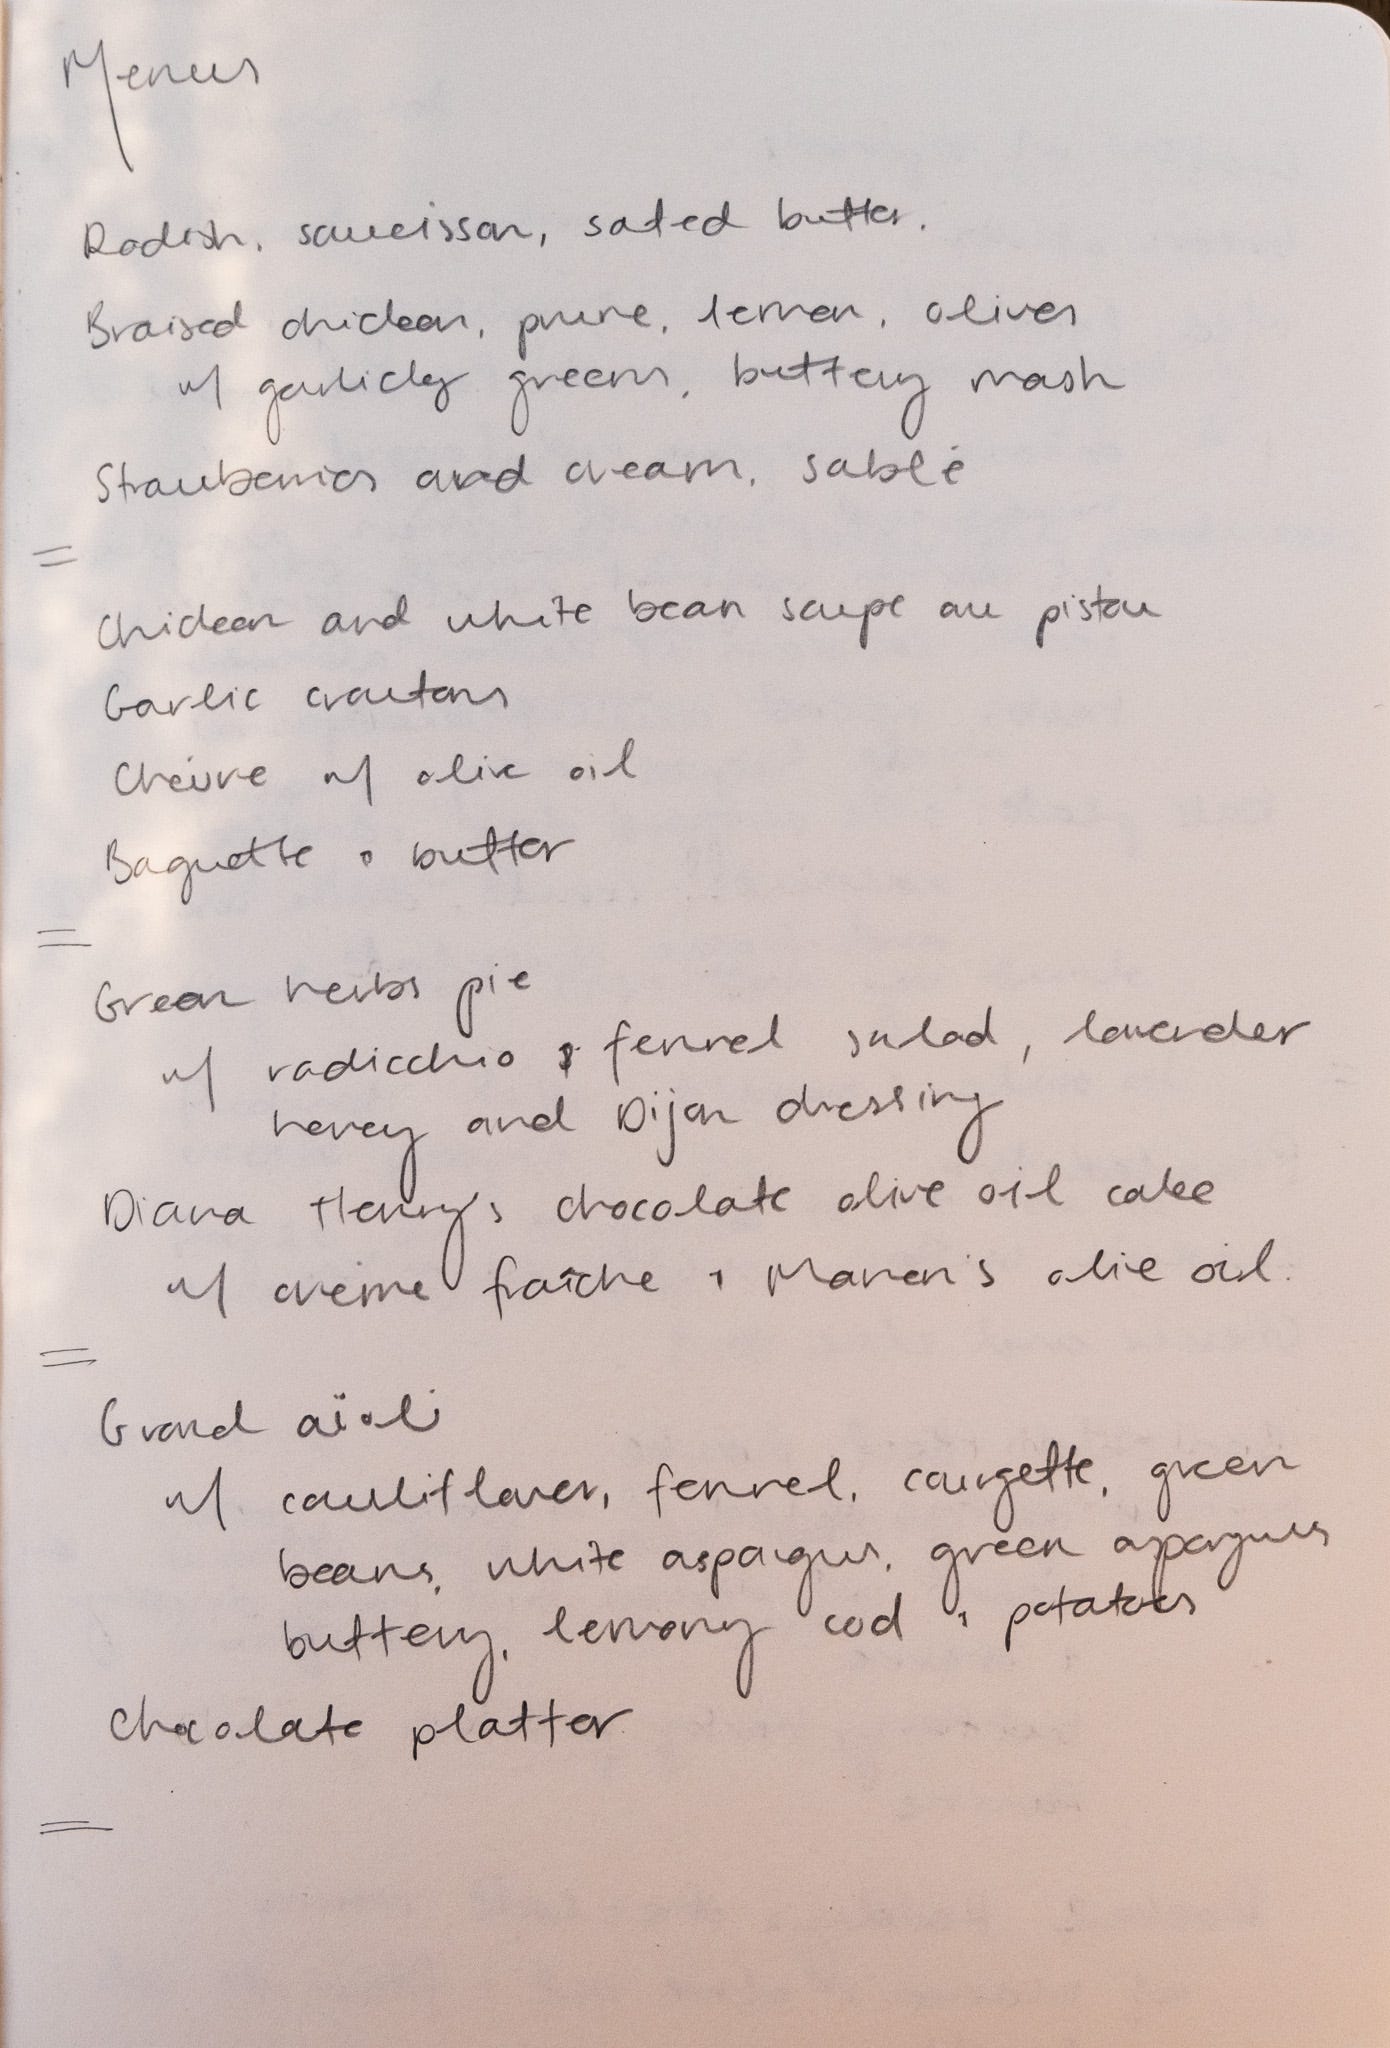 Menus
Radish, saucisson, salted butter.
Braised chicken, prune, lemon, olives
w/ garlicky greens, buttery mash
Strawberries and cream, sablé
=
Chicken and white bean soupe au pistou
Garlic croutons
Chèvre w/ olive oil
Baguette + butter
=
Green herbs pie
w/ radicchio + fennel salad, lavender
honey and Dijon dressing
Diana Henry's chocolate olive oil cake
w/ crème fraîche + olive oil.
=
Grand aïoli
w/ cauliflower, fennel, courgette, green
beans, white aspargus, green aspargus
buttery, lemony cod + potatoes
Chocolate platter
=